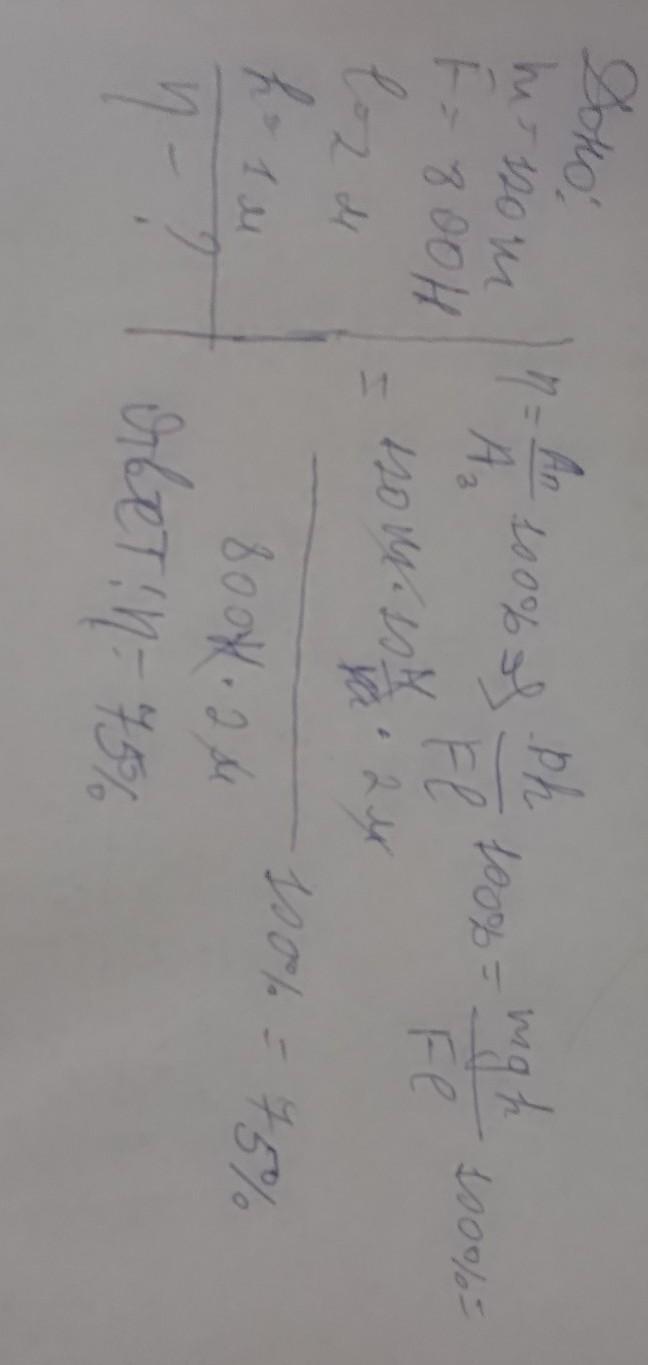 Дано:
m = 120 кг
F = 800 Н
l = 2 м
h = 1 м
η - ?
η = Aп/Aз 100% = Ph/Fl 100% = mgh/Fl 100% =
= 120 кг · 10 Н/кг · 2 м / 800 Н · 2 м 100% = 75%
Ответ: η = 75%